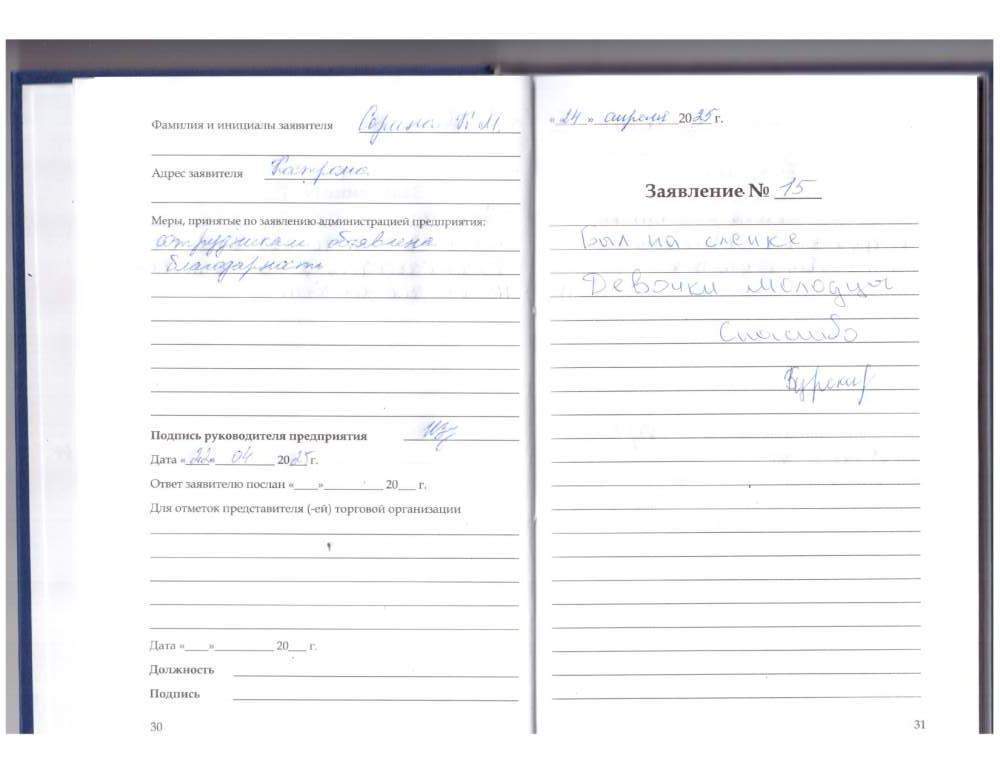 Фамилия и инициалы заявителя Сорина К М.
Адрес заявителя Кострома
Меры, принятые по заявлению администрацией предприятия:
сотрудникам объявлена
благодарность
Подпись руководителя предприятия
Дата «22» 04 2025 г.
Ответ заявителю послан «____»__________ 20___ г.
Для отметок представителя (-ей) торговой организации
Дата «____»__________ 20___ г.
Должность
Подпись
30
«24» апреля 2025 г.
Заявление № 15
Был на слепке
Девочки молодцы
Спасибо
31